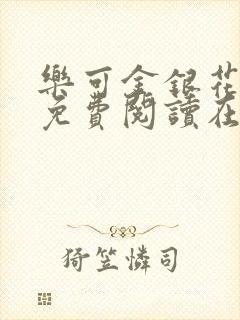 樂可金銀花
免費閱讀在
猗笠憐司